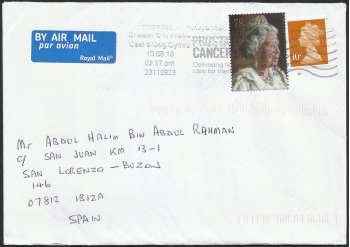 BY AIR MAIL
par avion
Royal Mail
10-08-18
03:37 pm
23110923
PROST
CANCER
Delivering
care for men
10P
Mr ABDUL HALIM BIN ABDUL RAHMAN
C/ SAN JUAN KM 13-1
SAN LORENZO - BUZON
146
07812 IBIZA
SPAIN